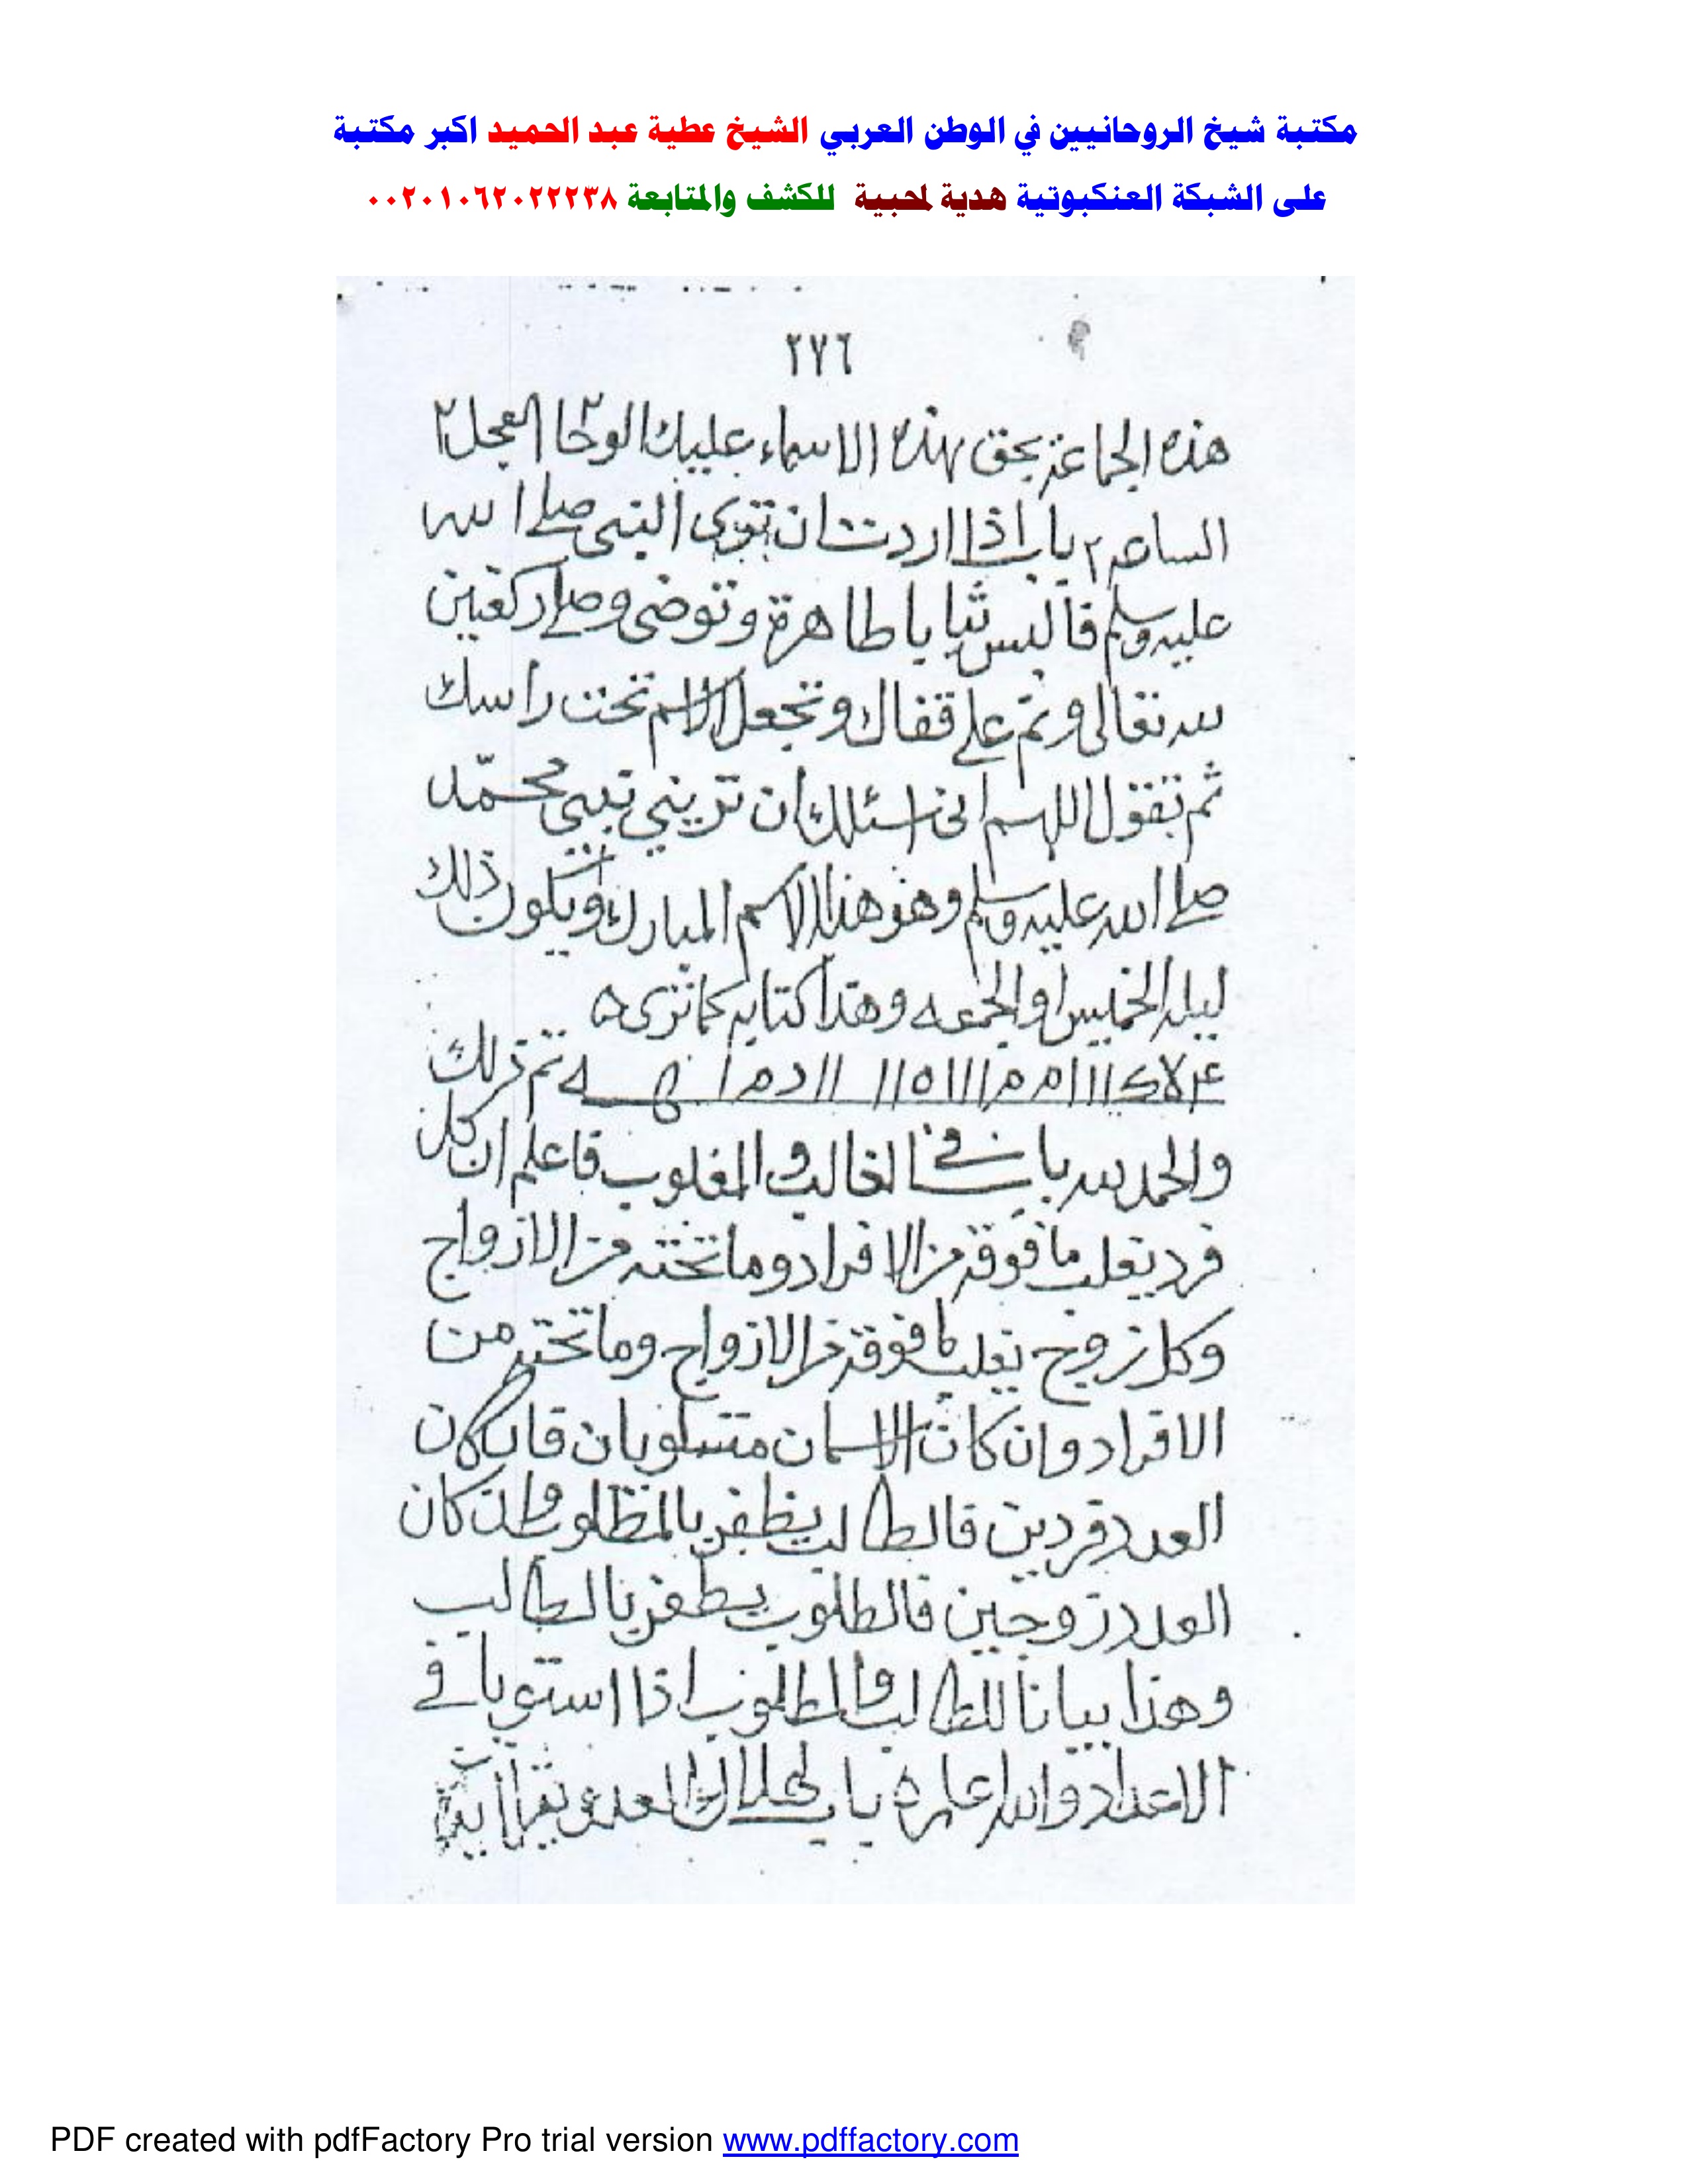 مكتبة شيخ الروحانيين في الوطن العربي الشيخ عطية عبد الحميد اكبر مكتبة
على الشبكة العنكبوتية هدية لمحبية للكشف والمتابعة ٠٠٢٠١٠٦٢٠٢٢٢٣٨
٢٧٦
هذه الجماعة بحق هذه الاسماء عليك الوحا٢ العجل٢
الساعه٢ باب اذا اردت ان ترى النبي صلى الله
عليه وسلم فالبس ثيابا طاهرة وتوضى وصلى ركعتين
لله تعالى ونم على قفاك وتجعل الاسم تحت راسك
ثم تقول اللهم انى اسئلك ان تريني نبيى محمّد
صلى الله عليه وسلم وهو هذا الاسم المبارك ويكون ذلك
ليلة الخميس او الجمعه وهذا كتابه كما ترى ه
تم ذلك
والحمد لله باب في الغالب والمغلوب فاعلم ان كل
فرد يغلب ما فوقه من الافراد وما تحته من الازواج
وكل زوج يغلب ما فوقه من الازواج وما تحته من
الافراد وان كان الاسمان متساويان فان كان
العدد فردين فالطالب يظفر بالمطلوب وان كان
العدد زوجين فالطلوب يظفر بالطالب
وهذا بيانا للطالب والمطلوب اذا استويا في
الاعداد والله اعلم ه باب لهلاك العدو يقرا اية
PDF created with pdfFactory Pro trial version www.pdffactory.com